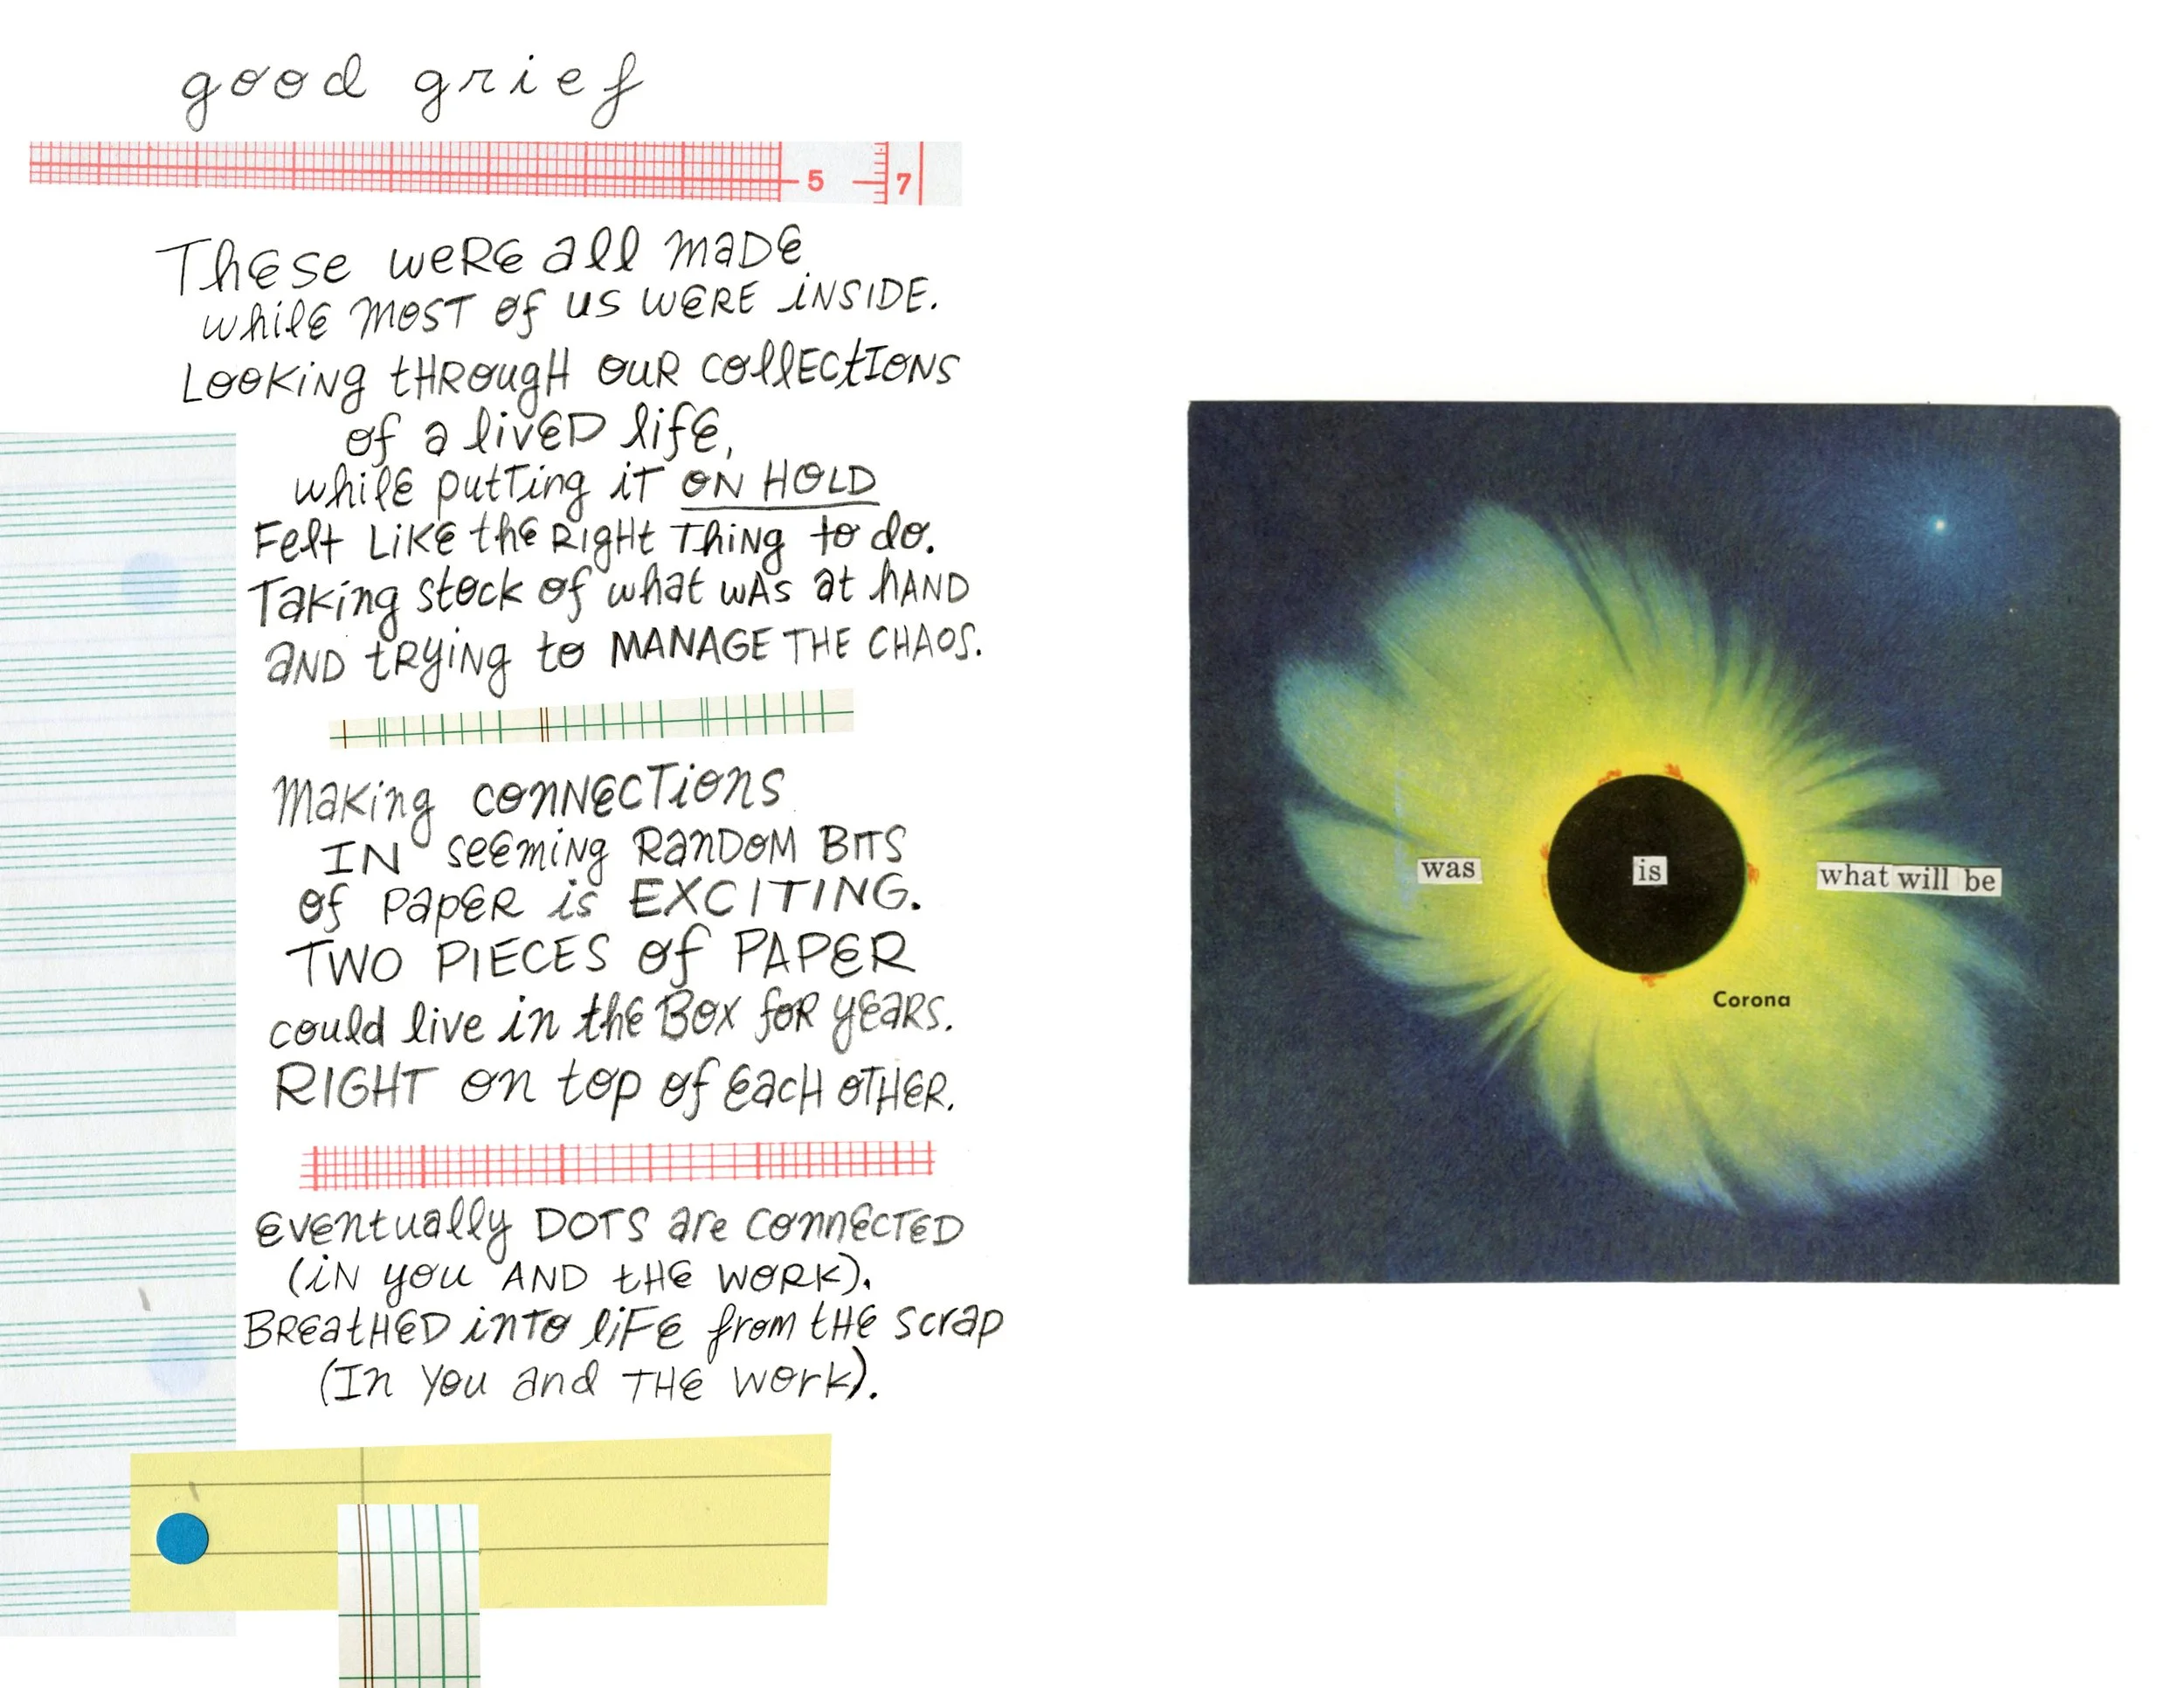 good grief
5 7
These were all made
while most of us were inside.
Looking through our collections
of a lived life,
while putting it ON HOLD
Felt Like the Right Thing to do.
Taking stock of what was at hand
and trying to MANAGE THE CHAOS.
Making connections
IN seeming Random Bits
of paper is EXCITING.
TWO PIECES of PAPER
could live in the Box for years.
RIGHT on top of each other.
eventually DOTS are connected
(in you AND the work).
Breathed into life from the scrap
(In you and the work).
was is what will be
Corona